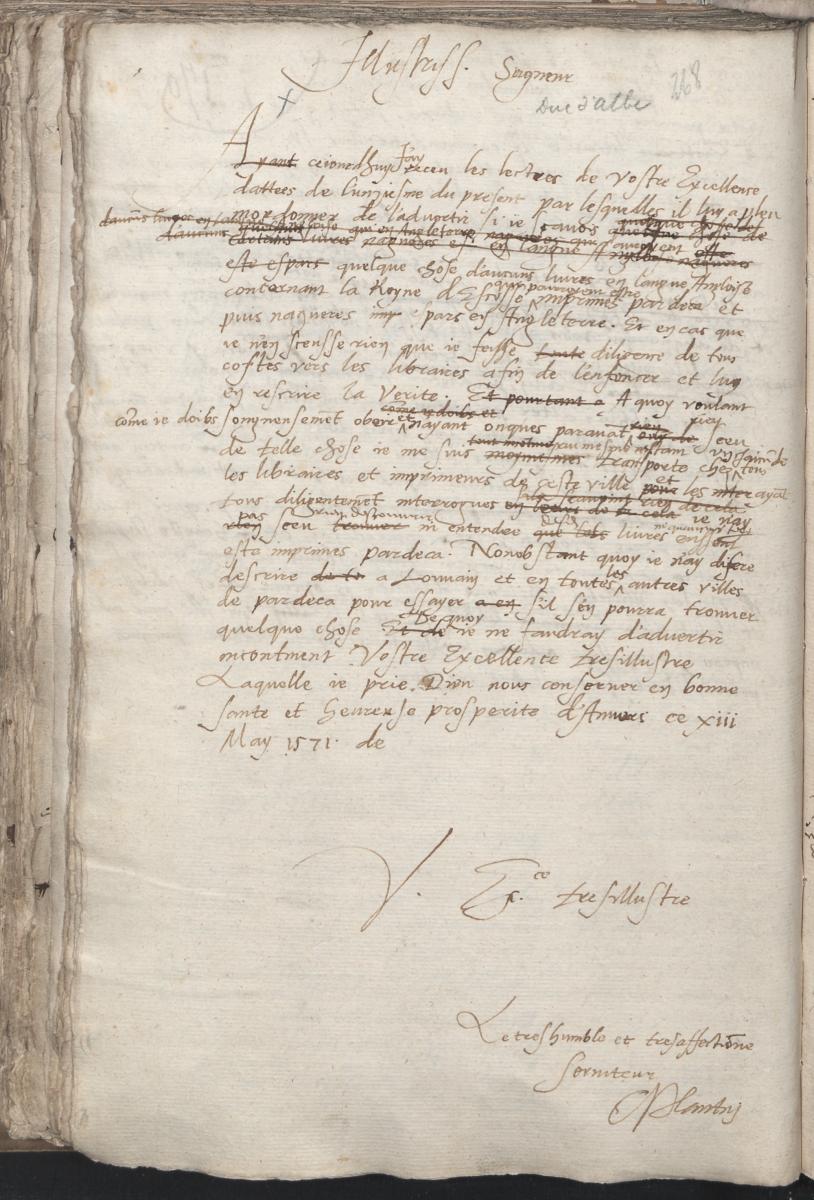 Illustriss. Seigneur
Duc d'Albe
268
Ayant ceiourdhuy i'ay receu les lectres de Vostre Excellence
dattees de l'unziesme du present par lesquelles il luy a pleu
mordonner de l'advertir si ie scavois quelque chose de
certains livres nagueres en langue Angloise nagueres
este espars quelque chose d'aucuns livres en langue Angloise
concernant la Royne d'Escosse qui pourroyent estre imprimes par deca et
puis nagueres imp espars en Angleterre. Et en cas que
ie n'en sceusse rien que ie feisse toute diligence de tous
costes vers les libraires afin de l'enfoncer et luy
en rescrire la Verite. Et pourtant a A quoy voulant
come ie doibs songneusemet obeir et nayant onques paravat rien sceu
de telle chose ie me suis transporte ches tous
les libraires et imprimeurs de ceste ville et les ayat
tous diligentemet interrogues
ie nay
pas sceu trouver ni entendre que tels livres eussent
este imprimes pardeca. Nonobstant quoy ie nay differe
descrire a Louvain et en toutes les autres villes
de pardeca pour essayer s'il s'en pourra trouver
quelque chose De quoy ie ne faudray d'advertir
incontinent Vostre Excellence tresillustre
Laquelle ie prie Dieu nous conserver en bonne
sante et heureuse prosperite d'Anvers ce xiii
May 1571. de
V. Ex.ce tresillustre
Le treshumble et tresaffectione
serviteur
C Plantin